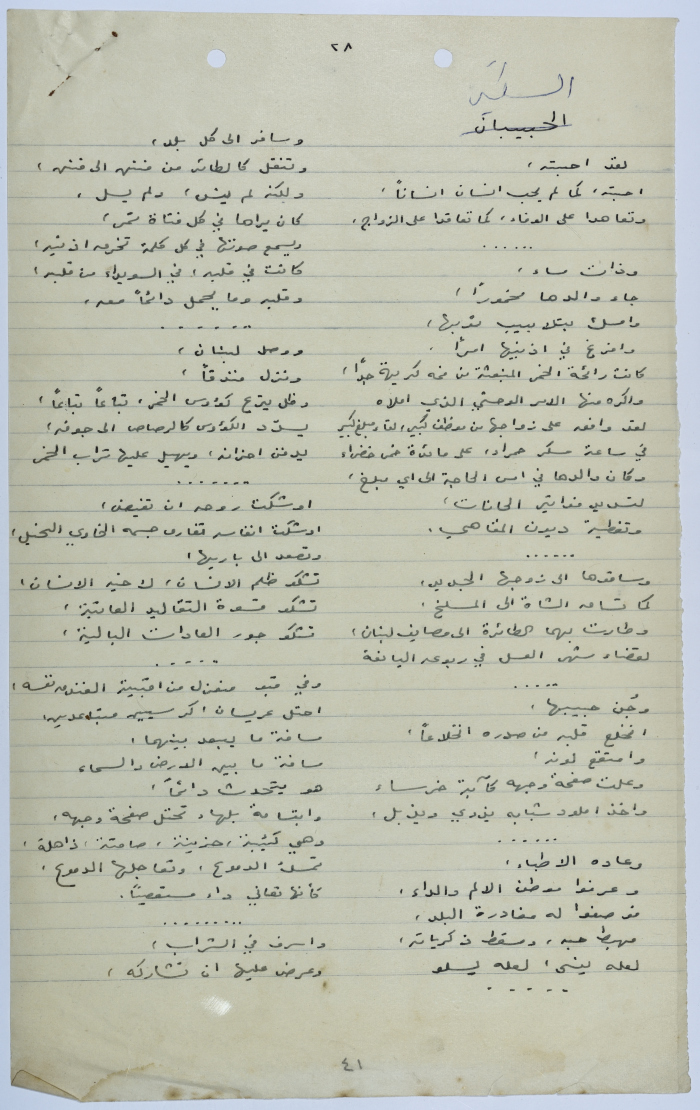 ٢٨
الحبيبان
لقد احببته،
احبته، كما لم يحب انسان انساناً،
وتعاهدا على الوفاء، كما تعاقدا على الزواج،
......
وذات مساء،
جاء والدها مخموراً،
وامسك بتلابيب ثوبها،
وافرغ في اذنيها امراً.
كانت رائحة الخمر المنبعثة من فمه كريهة جدًّا،
واكره منها الامر الوحشي الذي املاه
لقد وافق على زواجها من موظف كبير، لقاء مبلغ كبير
في ساعة سكر حمراء، على مائدة خضراء
وكان والدها في امس الحاجة الى اي مبلغ،
لتسديد فواتير الحانات،
وتغطية ديون المقاهي.
......
وساقوها الى زوجها الجديد،
كما تساق الشاة الى المسلخ،
وطارت بهما الطائرة الى مصايف لبنان،
لقضاء شهر العسل في ربوعه اليانعة
.....
وجُن حبيبها،
انخلع قلبه من صدره انخلاعاً،
وامتقع لونه،
وعلت صفحة وجهه كآبة خرساء
واخذ املود شبابه يذوي ويذبل،
......
وعاده الاطباء،
وعرفوا موطن الالم والداء،
فوصفوا له مغادرة البلد،
مهبط حبه، ومسقط ذكرياته،
لعله ينسى، لعله يسلو
......
وسافر الى كل بلد،
وتنقل كالطائر من فنن الى فنن،
ولكنه لم ينس، ولم يسل،
كان يراها في كل فتاة تمر،
ويسمع صوتها في كل كلمة تخرم اذنيه،
كانت في قلبه، في السويداء من قلبه،
وقلبه وما يحمل دائماً معه،
.......
ووصل لبنان،
ونزل فندقاً،
وظل يترع كؤوس الخمر، تباعاً تباعاً،
يسدد الكؤوس كالرصاص الى جوفه،
ليدفن احزانه، ويهيل عليها تراب الخمر
.......
اوشكت روحه ان تفيض،
اوشكت انفاسه تفارق جسمه الخاوي النحيل،
وتصعد الى باريها،
تشكو ظلم الانسان، لاخيه الانسان،
تشكو قسوة التقاليد العاتية،
تشكو جور العادات البالية،
.....
وفي قبو منعزل من اقبية الفندق نفسه،
احتل عريسان كرسيين متباعدين،
مسافة ما يبعد بينهما،
مسافة ما بين الارض والسماء
هو يتحدث دائماً،
وابتسامة بلهاء تحتل صفحة وجهه،
وهي كئيبة، حزينة، صامتة، ذاهلة،
تمسك الدموع، وتعاجلها الدموع،
كأنها تعاني داء مستعصياً.
.........
واسرف في الشراب،
وعرض عليها ان تشاركه،
٤١